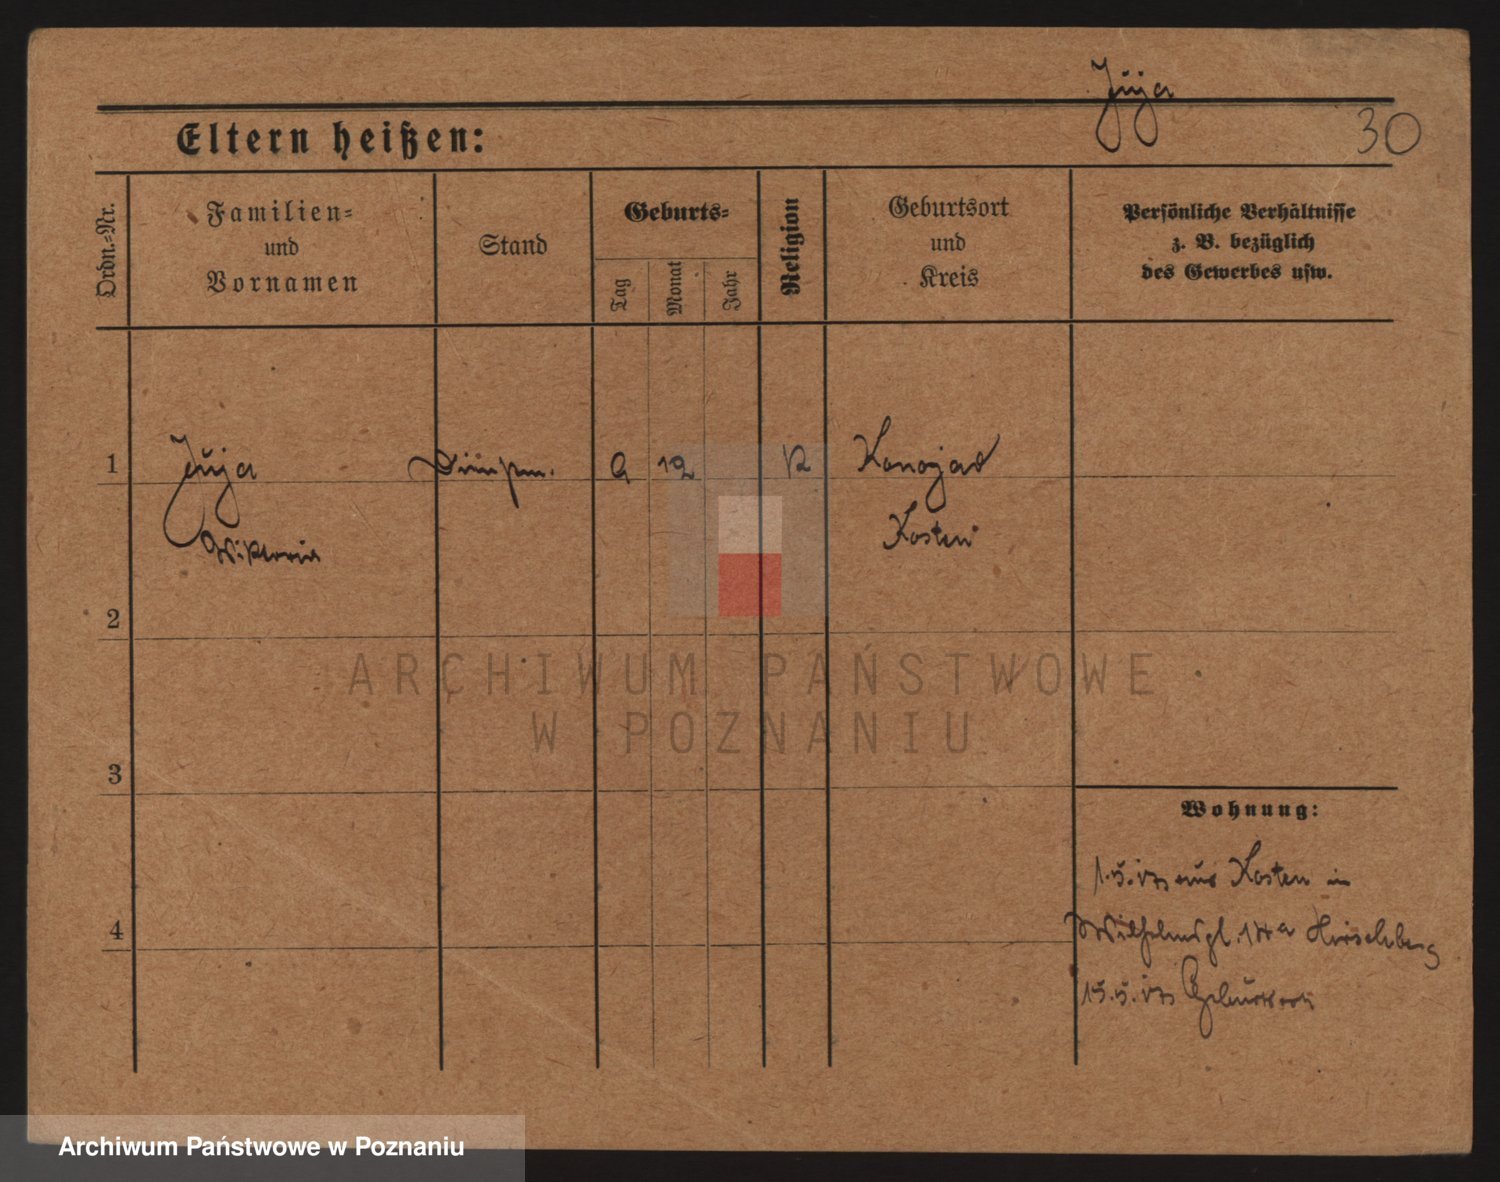 Juja
Eltern heißen:
30
Ordn.=Nr.
Familien=
und
Vornamen
Stand
Geburts=
Tag
Monat
Jahr
Religion
Geburtsort
und
Kreis
Persönliche Verhältnisse
z. B. bezüglich
des Gewerbes usw.
1
Juja
Wiktoria
9 12
K
Konojad
Kosten
2
3
4
Wohnung:
aus Kosten in
Hirschberg
15.5.
Geburtsort
ARCHIWUM PAŃSTWOWE
W POZNANIU
Archiwum Państwowe w Poznaniu